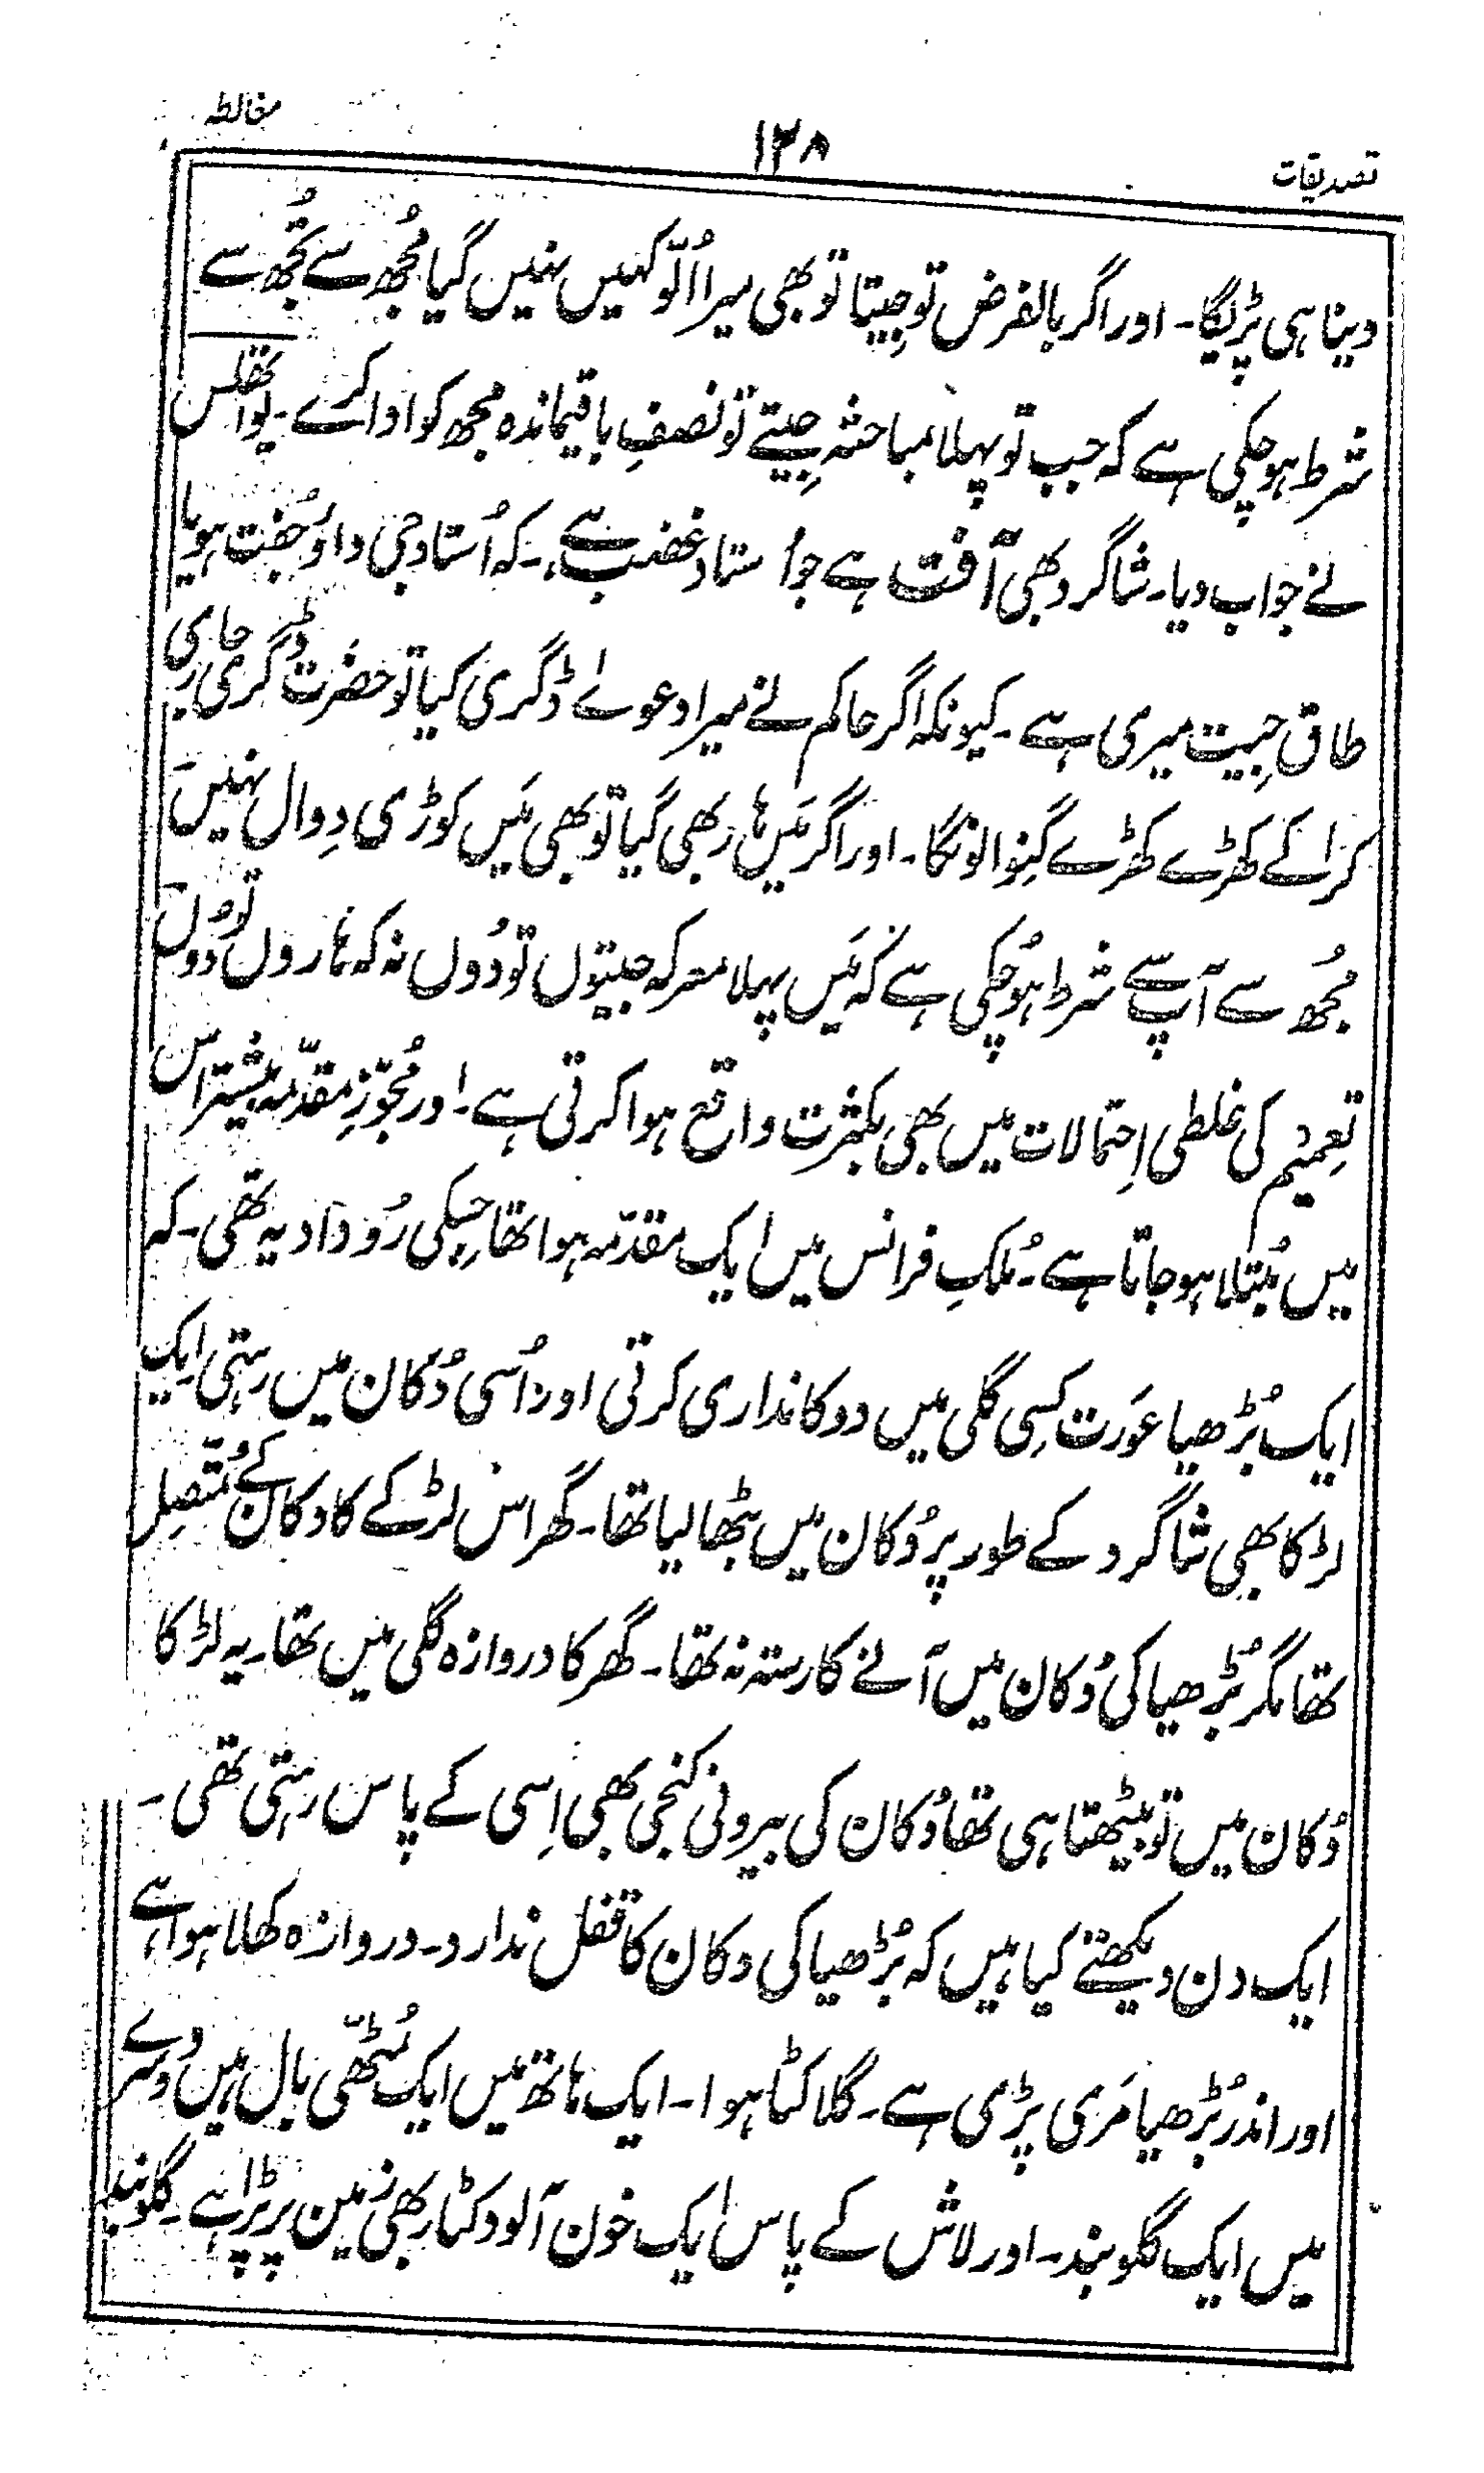 تصدیقات
۱۳۸
مغالطہ
دینا ہی پڑیگا۔ اور اگر بالفرض تو جِیتا تو بھی میرا اُلّو کہیں نہیں گیا مُجھ سے تُجھ سے
شرط ہو چکی ہے کہ جب تو پہلا مباحثہ جِیتے تو نصفِ باقیماندہ مجھ کو ادا کرے۔ یواتھلس
نے جواب دیا۔ شاگرد بھی آفت ہے جو اُستاد غضب ہے۔ کہ اُستاد جی داؤ جُفت ہو یا
طاق جِیت میری ہے۔ کیونکہ اگر حاکم نے میرا دعوےٰ ڈگری کیا تو حضرت ڈگری جاری
کرا کے کھڑے کھڑے گِنوا لونگا۔ اور اگر مَیں ہار بھی گیا تو بھی مَیں کوڑی دِوال نہیں
مُجھ سے آپ سے شرط ہُو چکی ہے کہ مَیں پہلا معرکہ جیتوں تو دُوں نہ کہ ہاروں تو دُوں
تعمِیم کی غلطی اِحتمالات میں بھی بکثرت واقع ہوا کرتی ہے۔ اور مُجوّزِ مقدّمہ بیشتر اس
میں مُبتلا ہو جاتا ہے۔ مُلکِ فرانس میں ایک مقدّمہ ہوا تھا جِسکی رُوداد یہ تھی۔ کہ
ایک بُڑھیا عورَت کِسی گلی میں دوکانداری کرتی اور اُسی دُکان میں رہتی ایک
لڑکا بھی شاگرد کے طور پر دُکان میں بٹھا لیا تھا۔ گھر اس لڑکے کا دکان کے مُتّصِل
تھا مگر بُڑھیا کی دُکان میں آنے کا رستہ نہ تھا۔ گھر کا دروازہ گلی میں تھا۔ یہ لڑکا
دُکان میں تو بیٹھتا ہی تھا دُکان کی بیرونی کنجی بھی اِسی کے پاس رہتی تھی۔
ایک دن دیکھتے کیا ہیں کہ بُڑھیا کی دکان کا قفل ندارد۔ دروازہ کھلا ہوا ہے
اور اندر بُڑھیا مَری پڑی ہے۔ گلا کٹا ہوا۔ ایک ہاتھ میں ایک مُٹھّی بال ہیں دُوسرے
میں ایک گلوبند۔ اور لاش کے پاس ایک خون آلود کٹار بھی زمین پر پڑا ہے۔ گلوبند